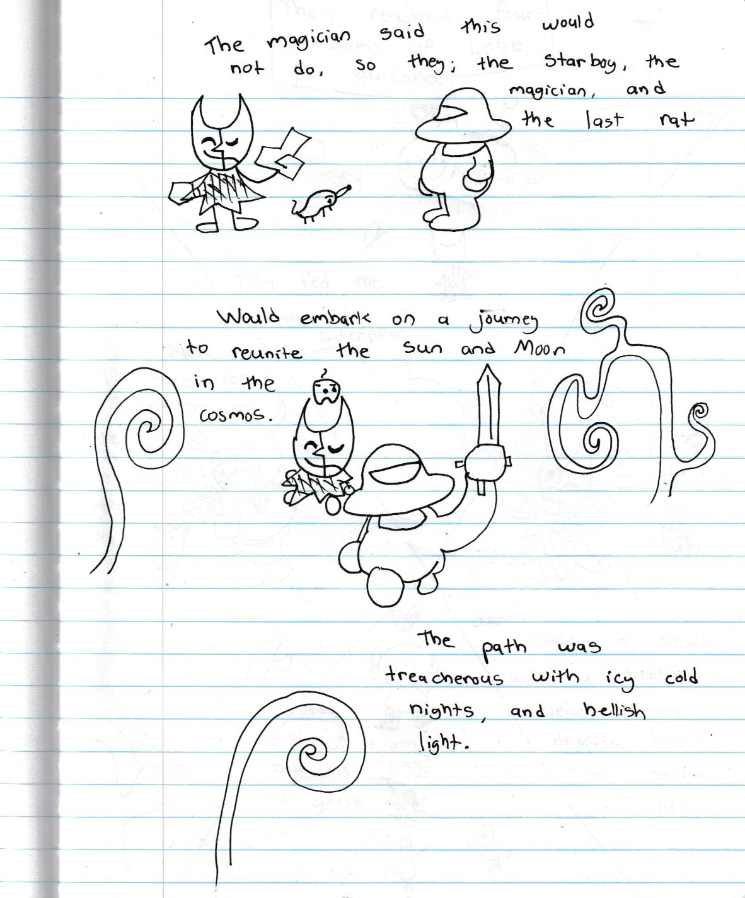 The magician said this would
not do, so they; the Starboy, the
magician, and
the last rat
Would embark on a journey
to reunite the Sun and Moon
in the
cosmos.
The path was
treacherous with icy cold
nights, and hellish
light.